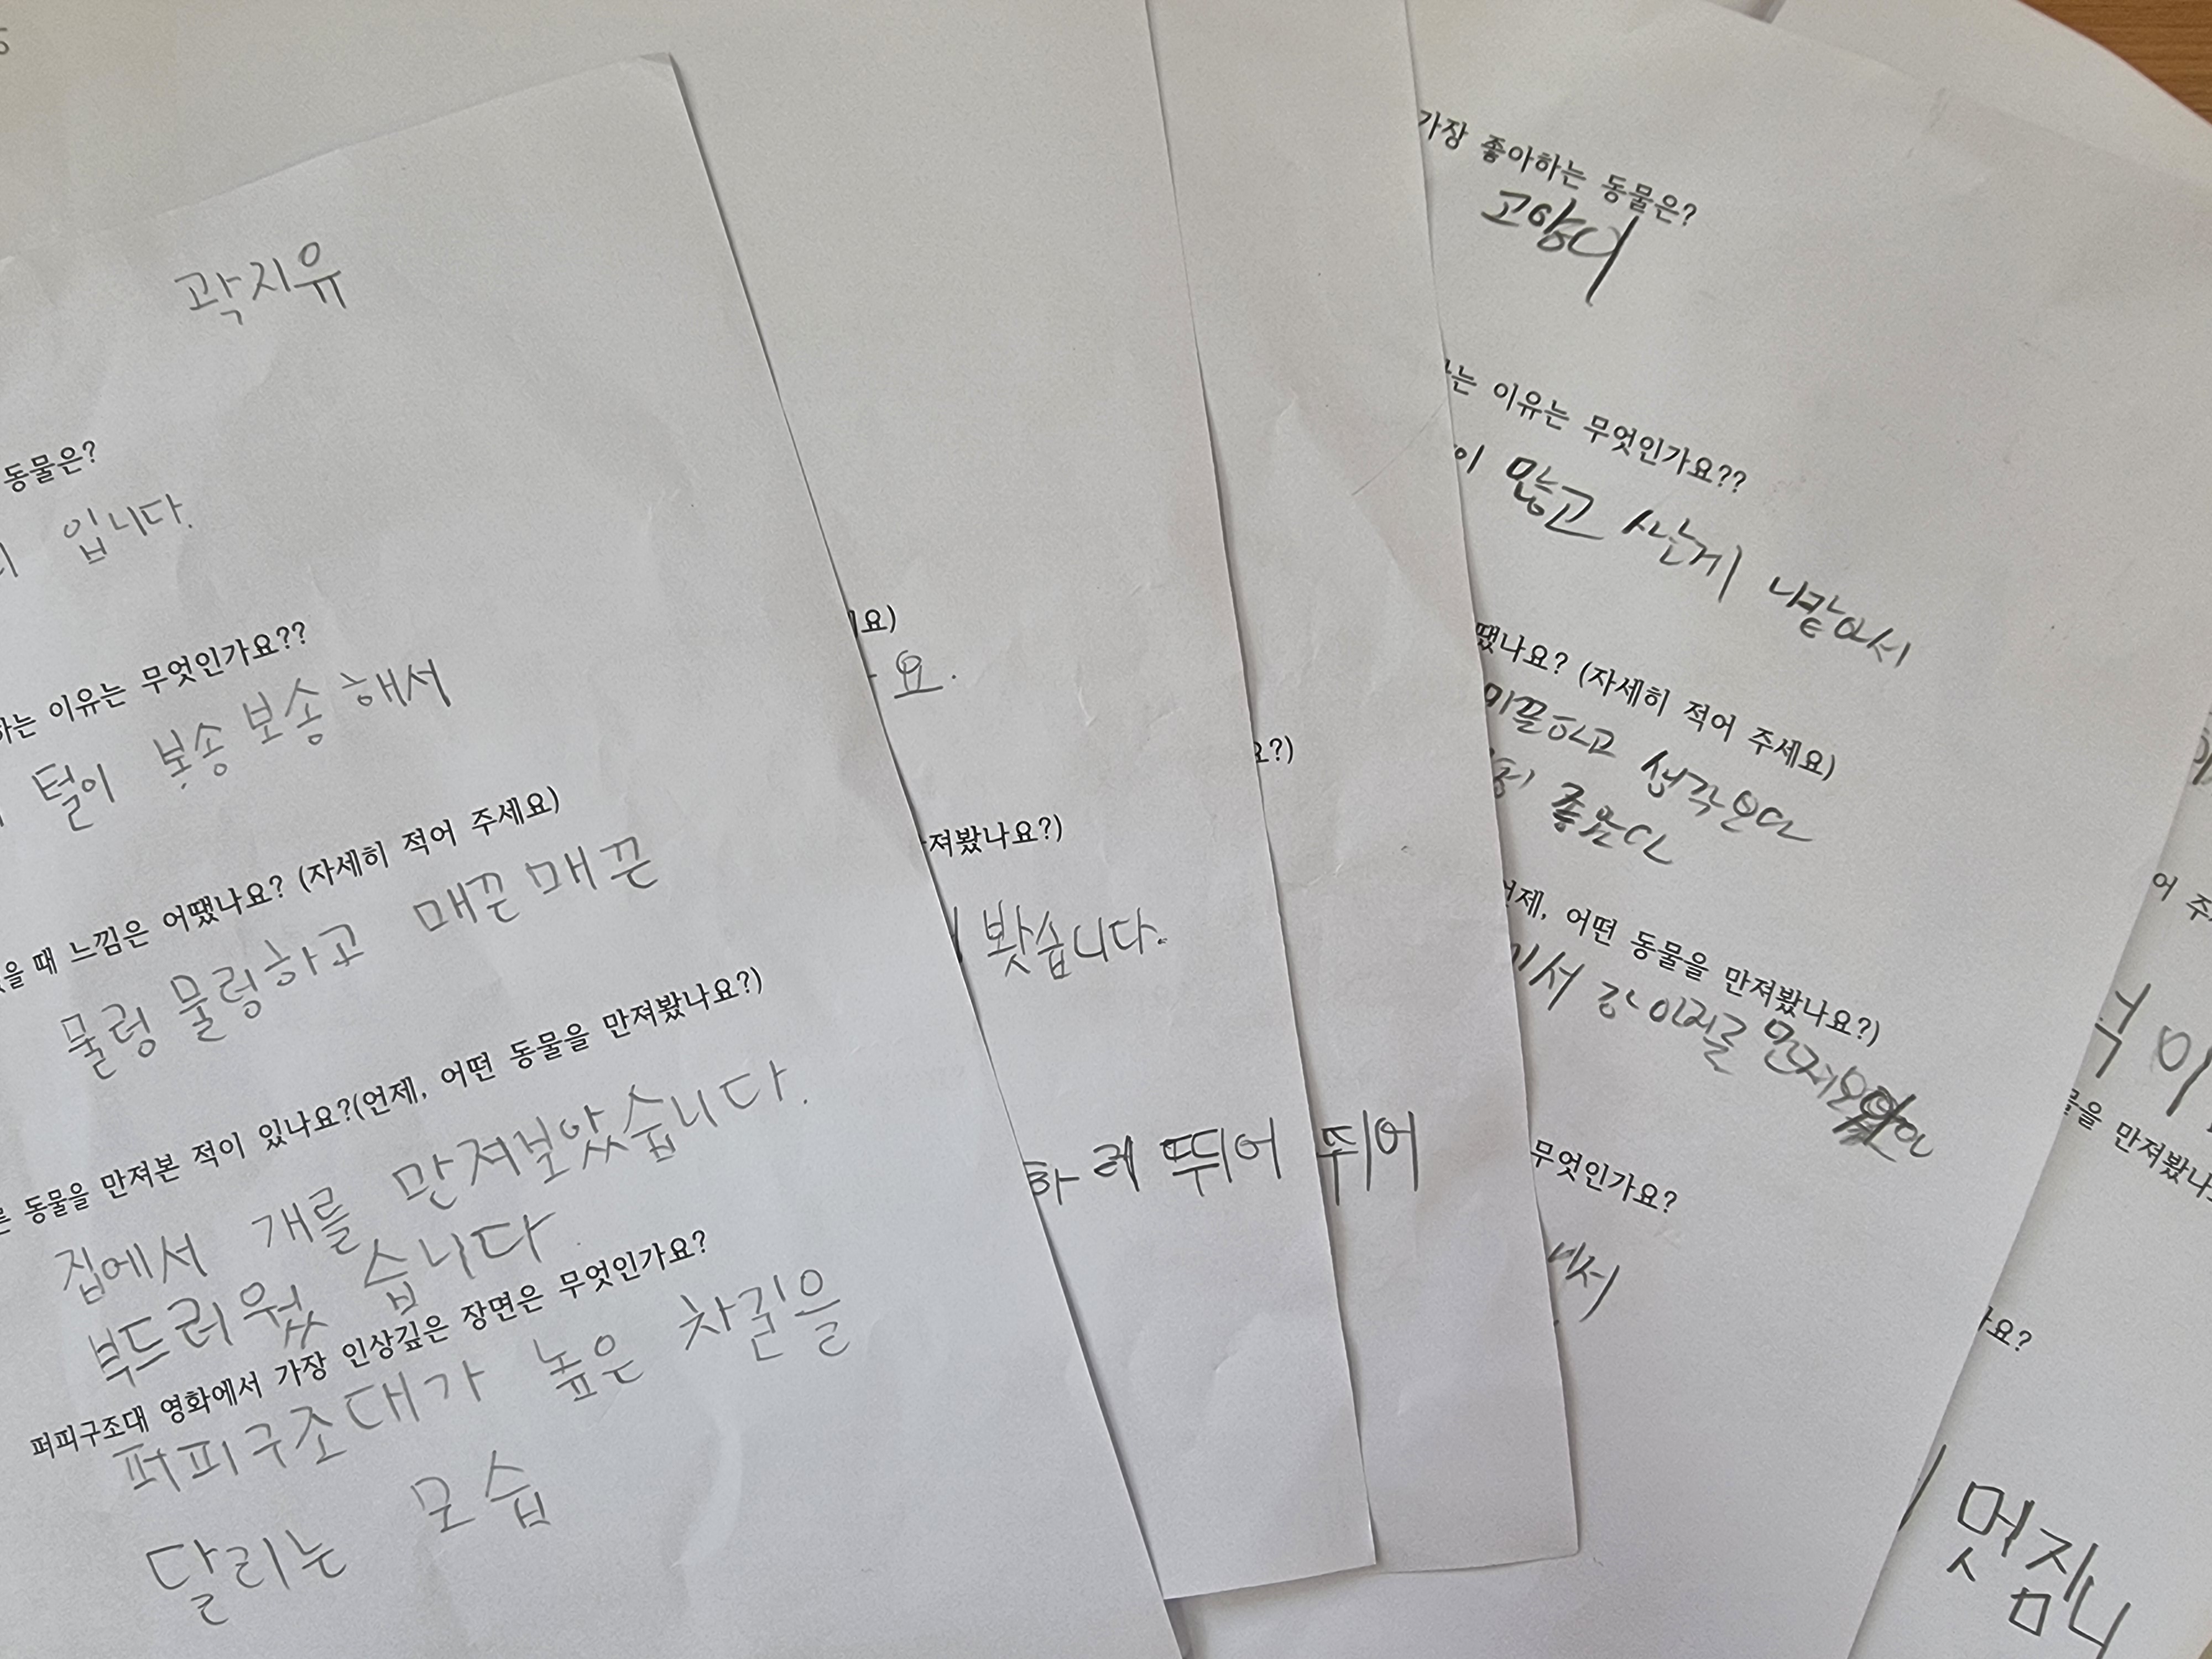 곽지유
동물은?
입니다.
하는 이유는 무엇인가요??
털이 뽀송 보송 해서
을 때 느낌은 어땠나요? (자세히 적어 주세요)
물렁 물렁하고 매끈 매끈
동물을 만져본 적이 있나요?(언제, 어떤 동물을 만져봤나요?)
집에서 개를 만져보았습니다.
부드러웠 습니다.
퍼피구조대 영화에서 가장 인상깊은 장면은 무엇인가요?
퍼피구조대가 높은 차길을
달리는 모습
요)
요.
져봤나요?)
봣습니다.
하레 뛰어
요?)
뛰어
가장 좋아하는 동물은?
고양이
는 이유는 무엇인가요??
이 많고 사난게 나같아서
땠나요? (자세히 적어 주세요)
미끌하고 생각보다
좋았다
언제, 어떤 동물을 만져봤나요?)
에서 강아지를
무엇인가요?
해서
어 주
을 만져봤나
요?
멋짐니